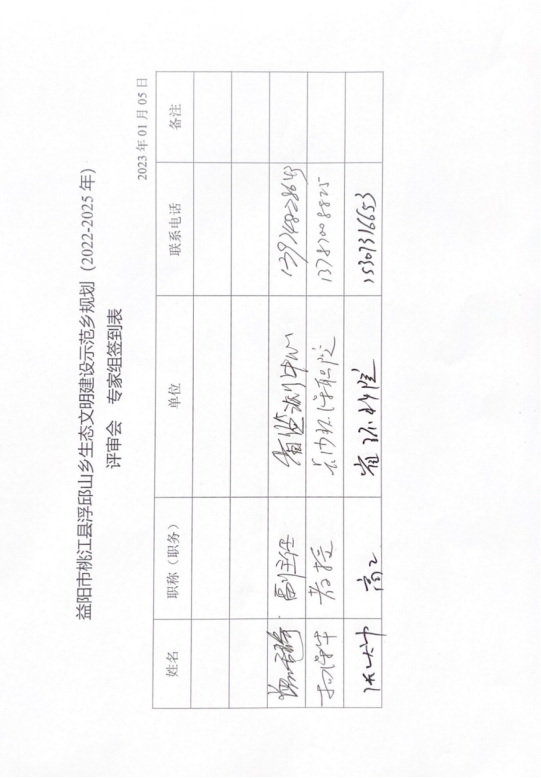 益阳市桃江县浮邱山乡生态文明建设示范乡规划（2022-2025 年）
评审会 专家组签到表
2023 年 01 月 05 日
姓名 职称（职务） 单位 联系电话 备注
副主任 省监测中心
教授 长沙环保职院
高工 省环科院 15307316653